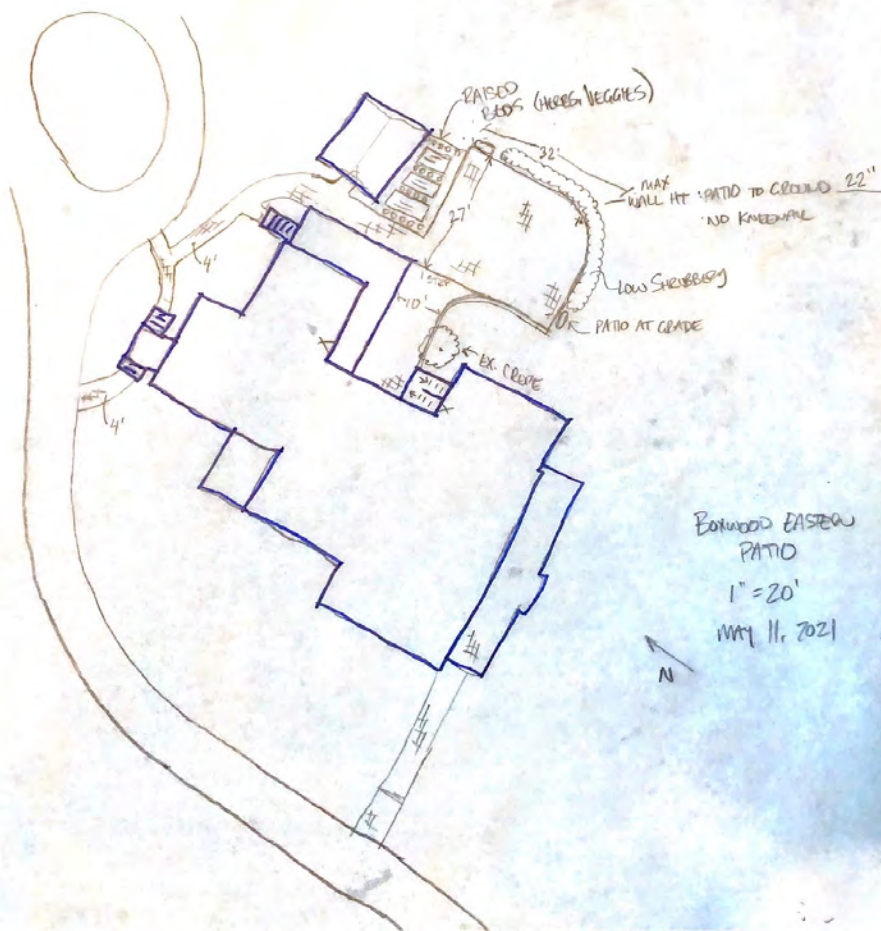 RAISED
BEDS (HERBS/VEGGIES)
32'
MAX
WALL HT : PATIO TO GROUND 22"
NO KNEEWALL
27'
LOW SHRUBBERY
PATIO AT GRADE
4'
10'
EX. CREPE
4'
BOXWOOD EASTERN
PATIO
1" = 20'
MAY 11, 2021
N